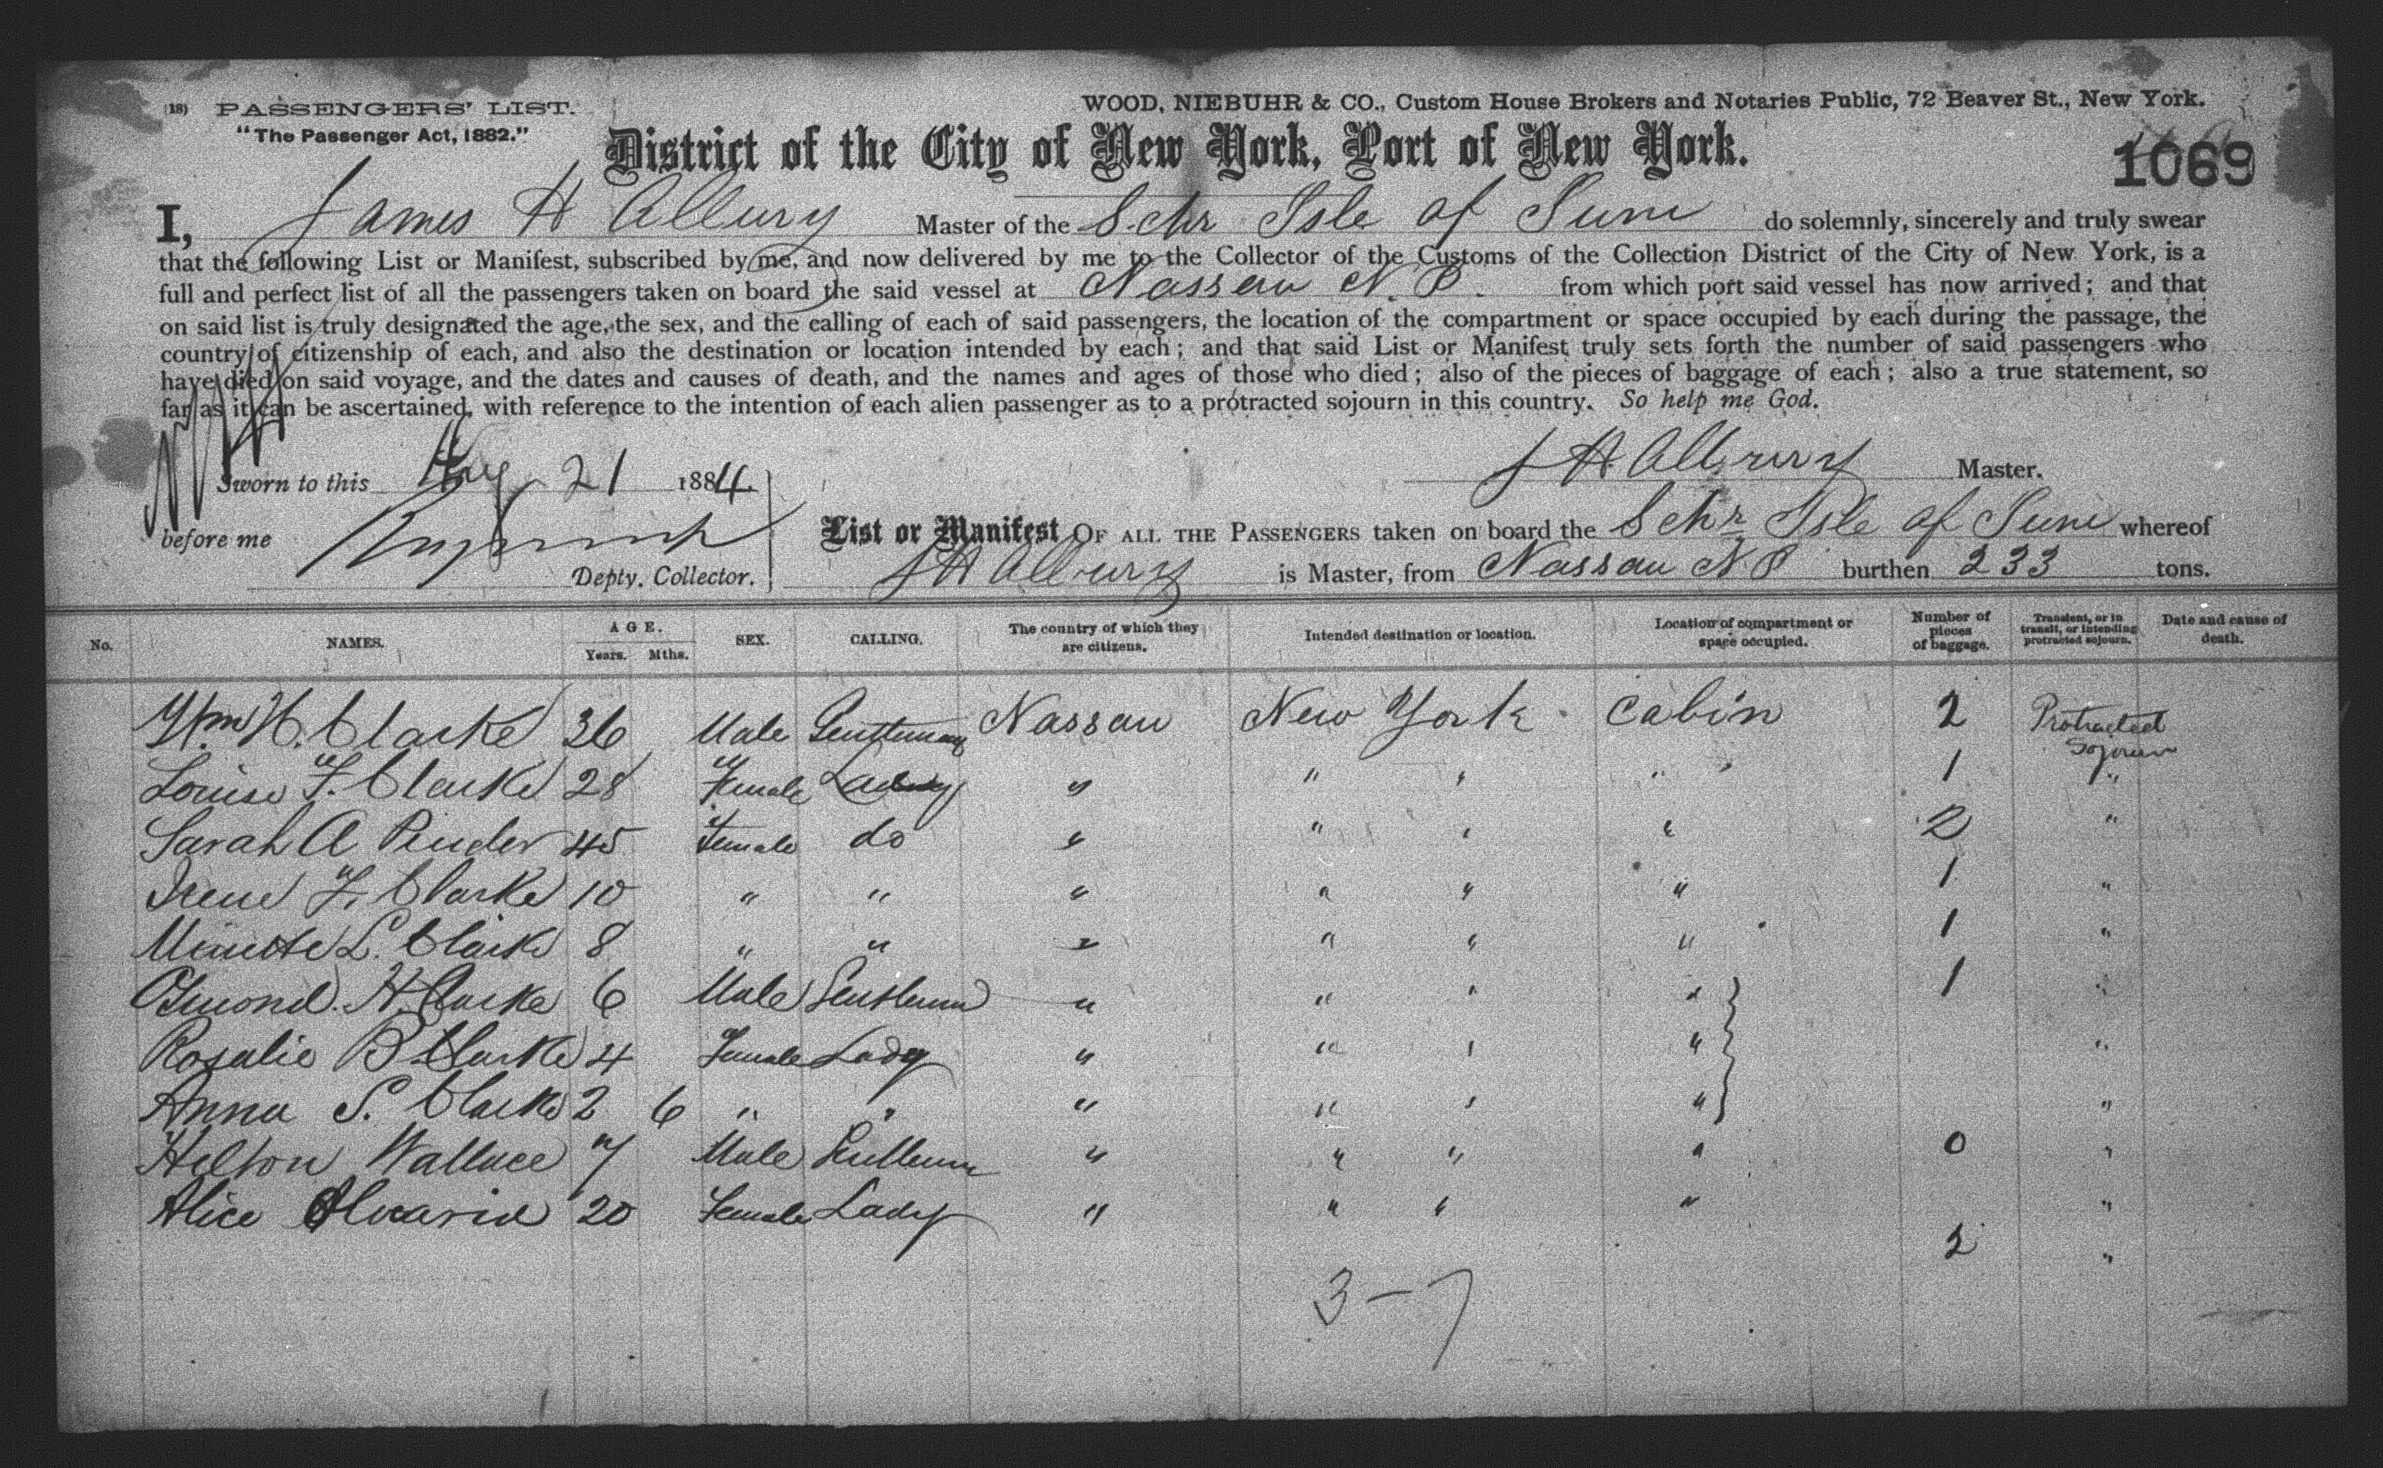 (18) PASSENGERS' LIST.
"The Passenger Act, 1882."
WOOD, NIEBUHR & CO., Custom House Brokers and Notaries Public, 72 Beaver St., New York.
District of the City of New York, Port of New York.
1069
I, James H Albury Master of the Schr Isle of June do solemnly, sincerely and truly swear
that the following List or Manifest, subscribed by me, and now delivered by me to the Collector of the Customs of the Collection District of the City of New York, is a
full and perfect list of all the passengers taken on board the said vessel at Nassau N.P. from which port said vessel has now arrived; and that
on said list is truly designated the age, the sex, and the calling of each of said passengers, the location of the compartment or space occupied by each during the passage, the
country of citizenship of each, and also the destination or location intended by each; and that said List or Manifest truly sets forth the number of said passengers who
have died on said voyage, and the dates and causes of death, and the names and ages of those who died; also of the pieces of baggage of each; also a true statement, so
far as it can be ascertained, with reference to the intention of each alien passenger as to a protracted sojourn in this country. So help me God.
Sworn to this Aug 21 1884.
J H Albury Master.
before me
Depty. Collector.
List or Manifest OF ALL THE PASSENGERS taken on board the Schr Isle of June whereof
J H Albury is Master, from Nassau N P burthen 233 tons.
No. NAMES. AGE. Years. Mths. SEX. CALLING. The country of which they are citizens. Intended destination or location. Location of compartment or space occupied. Number of pieces of baggage. Transient, or in transit, or intending protracted sojourn. Date and cause of death.
Wm H. Clarke 36 Male Gentleman Nassau New York Cabin 2 Protracted Sojourn
Louise F. Clarke 28 Female Lady " " " " " 1 "
Sarah A Pinder 45 Female do " " " " 2 "
Irene F. Clarke 10 " " " " " " 1 "
Minette L. Clarke 8 " " " " " " 1 "
Osmond. H. Clarke 6 Male Gentleman " " " " 1 "
Rosalie B Clarke 4 Female Lady " " " " "
Anna S. Clarke 2 6 " " " " " " "
Hilton Wallace 7 Male Gentleman " " " " 0 "
Alice 20 Female Lady " " " " "
2 "
3 - 7